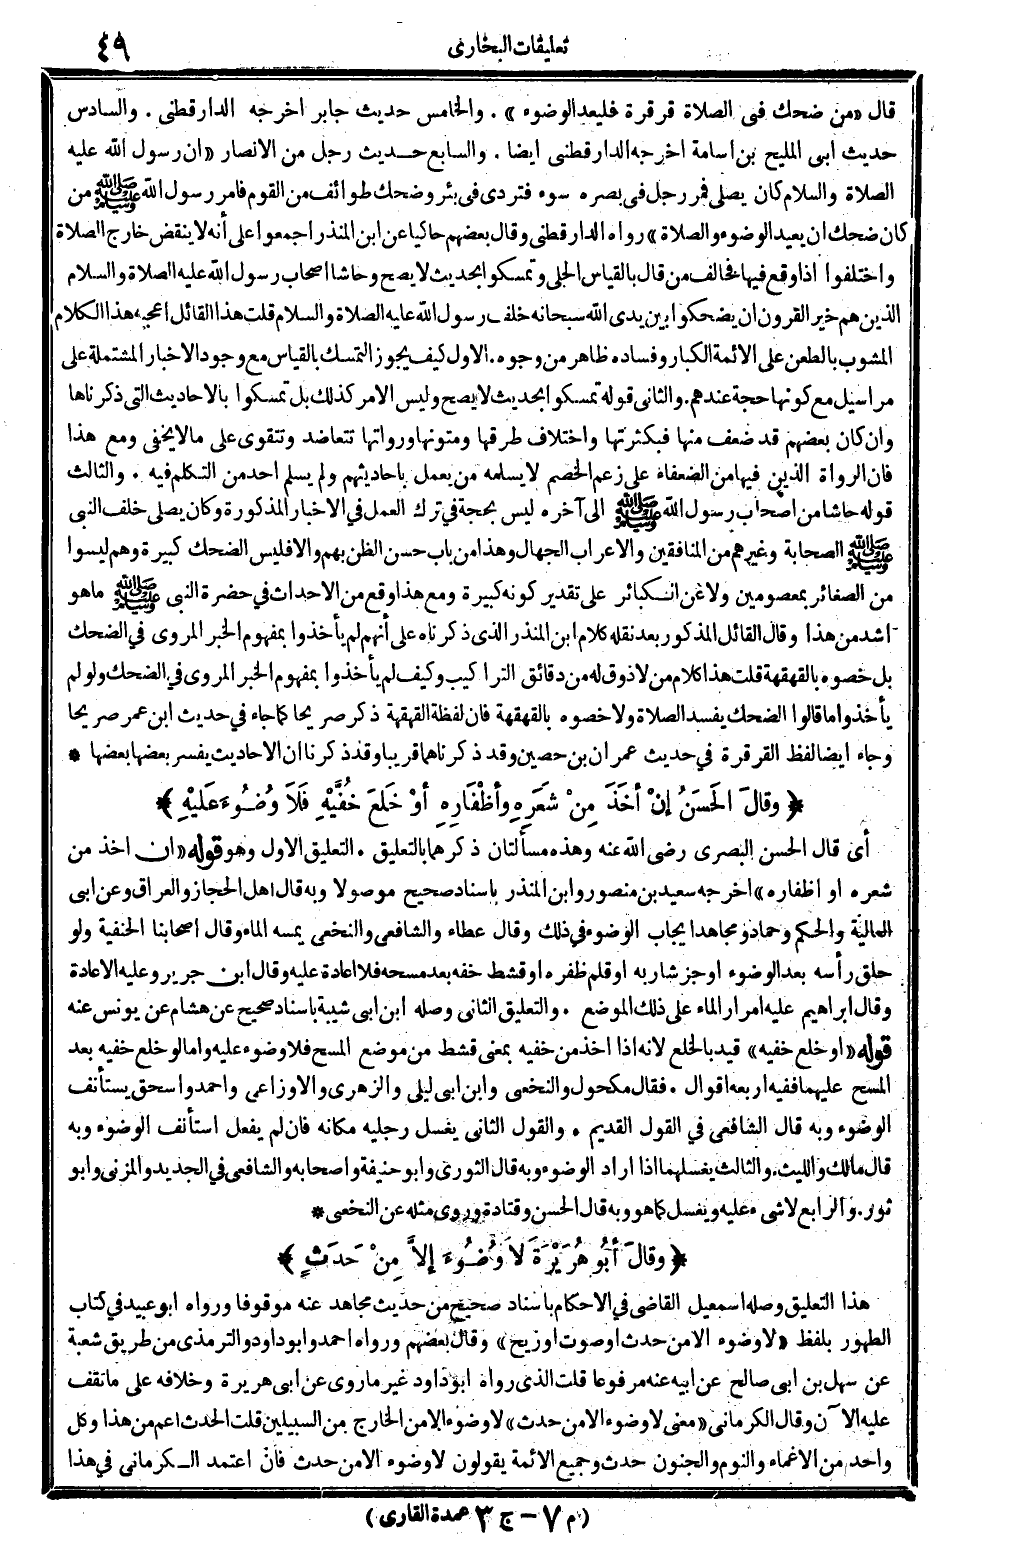 تعليقات البخارى
٤٩
قال «من ضحك فى الصلاة قرقرة فليعد الوضوء» . والخامس حديث جابر اخرجه الدارقطنى . والسادس
حديث ابى المليح بن اسامة اخرجه الدارقطنى ايضا . والسابع حديث رجل من الانصار «ان رسول الله عليه
الصلاة والسلام كان يصلى فمر رجل فى بصره سوء فتردى فى بئر وضحك طوائف من القوم فامر رسول الله ﷺ من
كان ضحك ان يعيد الوضوء والصلاة» رواه الدارقطنى وقال بعضهم حاكيا عن ابن المنذر اجمعوا على أنه لا ينقض خارج الصلاة
واختلفوا اذا وقع فيها فخالف من قال بالقياس الجلى وتمسكوا بحديث لا يصح وحاشا اصحاب رسول الله عليه الصلاة والسلام
الذين هم خير القرون ان يضحكوا بين يدى الله سبحانه خلف رسول الله عليه الصلاة والسلام قلت هذا القائل اعجبه هذا الكلام
المشوب بالطعن على الائمة الكبار وفساده ظاهر من وجوه . الاول كيف يجوز التمسك بالقياس مع وجود الاخبار المشتملة على
مراسيل مع كونها حجة عندهم . والثانى قوله تمسكوا بحديث لا يصح وليس الامر كذلك بل تمسكوا بالاحاديث التى ذكرناها
وان كان بعضهم قد ضعف منها فبكثرتها واختلاف طرقها ومتونها ورواتها تتعاضد وتتقوى على مالا يخفى ومع هذا
فان الرواة الذين فيها من الضعفاء على زعم الخصم لا يسلمه من يعمل باحاديثهم ولم يسلم احد من التكلم فيه . والثالث
قوله حاشا من اصحاب رسول الله ﷺ الى آخره ليس بحجة فى ترك العمل فى الاخبار المذكورة وكان يصلى خلف النبى
ﷺ الصحابة وغيرهم من المنافقين والاعراب الجهال وهذا من باب حسن الظن بهم والا فليس الضحك كبيرة وهم ليسوا
من الصغائر بمعصومين ولا عن الكبائر على تقدير كونه كبيرة ومع هذا وقع من الاحداث فى حضرة النبى ﷺ ماهو
اشد من هذا وقال القائل المذكور بعد نقله كلام ابن المنذر الذى ذكرناه على أنهم لم يأخذوا بمفهوم الخبر المروى فى الضحك
بل خصوه بالقهقهة قلت هذا كلام من لا ذوق له من دقائق التراكيب وكيف لم يأخذوا بمفهوم الخبر المروى فى الضحك ولو لم
يأخذوا ما قالوا الضحك يفسد الصلاة ولا خصوه بالقهقهة فان لفظة القهقهة ذكر صريحا كما جاء فى حديث ابن عمر صريحا
وجاء ايضا لفظ القرقرة فى حديث عمران بن حصين وقد ذكرناهما قريبا وقد ذكرنا ان الاحاديث يفسر بعضها بعضها *
﴿ وقالَ الحَسَنُ إنْ أخَذَ مِنْ شَعَرِهِ وأظْفَارِهِ أوْ خَلَعَ خُفَّيْهِ فَلاَ وُضُوءَ عَلَيْهِ ﴾
أى قال الحسن البصرى رضى الله عنه وهذه مسألتان ذكرهما بالتعليق . التعليق الاول وهو قوله «ان اخذ من
شعره او اظفاره» اخرجه سعيد بن منصور وابن المنذر باسناد صحيح موصولا وبه قال اهل الحجاز والعراق وعن ابى
العالية والحكم وحماد ومجاهد ايجاب الوضوء فى ذلك وقال عطاء والشافعى والنخعى يمسه الماء وقال اصحابنا الحنفية ولو
حلق رأسه بعد الوضوء اوجز شاربه او قلم ظفره او قشط خفه بعد مسحه فلا اعادة عليه وقال ابن جرير وعليه الاعادة
وقال ابراهيم عليه امرار الماء على ذلك الموضع . والتعليق الثانى وصله ابن ابى شيبة باسناد صحيح عن هشام عن يونس عنه
قوله «او خلع خفيه» قيد بالخلع لانه اذا اخذ من خفيه بمعنى قشط من موضع المسح فلا وضوء عليه واما لو خلع خفيه بعد
المسح عليهما ففيه اربعه اقوال . فقال مكحول والنخعى وابن ابى ليلى والزهرى والاوزاعى واحمد واسحق يستأنف
الوضوء وبه قال الشافعى فى القول القديم . والقول الثانى يغسل رجليه مكانه فان لم يفعل استأنف الوضوء وبه
قال مالك والليث . والثالث يغسلهما اذا اراد الوضوء وبه قال الثورى وابو حنيفة واصحابه والشافعى فى الجديد والمزنى وابو
ثور . والرابع لاشىء عليه ويغسل كما هو وبه قال الحسن وقتادة وروى مثله عن النخعى *
﴿ وقالَ أبُو هُرَيْرَةَ لاَ وُضُوءَ إلاَّ مِنْ حَدَثٍ ﴾
هذا التعليق وصله اسمعيل القاضى فى الاحكام باسناد صحيح من حديث مجاهد عنه موقوفا ورواه ابو عبيد فى كتاب
الطهور بلفظ «لا وضوء الا من حدث او صوت او ريح» وقال بعضهم ورواه احمد وابو داود والترمذى من طريق شعبة
عن سهل بن ابى صالح عن ابيه عنه مرفوعا قلت الذى رواه ابو داود غير ما روى عن ابى هريرة وخلافه على ما تقف
عليه الآن وقال الكرمانى «معنى لا وضوء الا من حدث» لا وضوء الا من الخارج من السبيلين قلت الحدث اعم من هذا وكل
واحد من الاغماء والنوم والجنون حدث وجميع الائمة يقولون لا وضوء الا من حدث فان اعتمد الكرمانى فى هذا
(م ٧ - ج ٣ عمدة القارى)